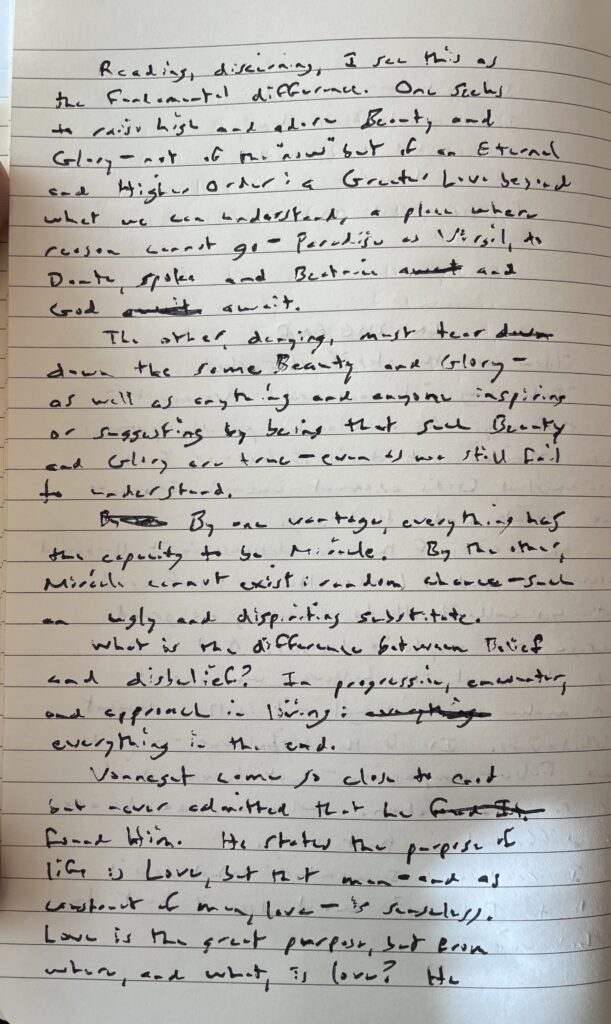 Reading, discerning, I see this as
the fundamental difference. One seeks
to raise high and adore Beauty and
Glory – not of the "now" but of an Eternal
and Higher Order: a Greater Love beyond
what we can understand, a place where
reason cannot go – Paradise as Virgil, to
Dante, spoke and Beatrice and
God await.
The other, denying, must tear
down the same Beauty and Glory –
as well as anything and anyone inspiring
or suggesting by being that such Beauty
and Glory are true – even as we still fail
to understand.
By one vantage, everything has
the capacity to be Miracle. By the other,
Miracle cannot exist: random chance – such
an ugly and dispiriting substitute.
What is the difference between Belief
and disbelief? In progression, encounter,
and approach in living:
everything in the end.
Vonnegut came so close to God
but never admitted that he
found Him. He stated the purpose of
life is Love, but that man – and as
construct of man, love – is senseless.
Love is the great purpose, but from
where, and what, is love? He